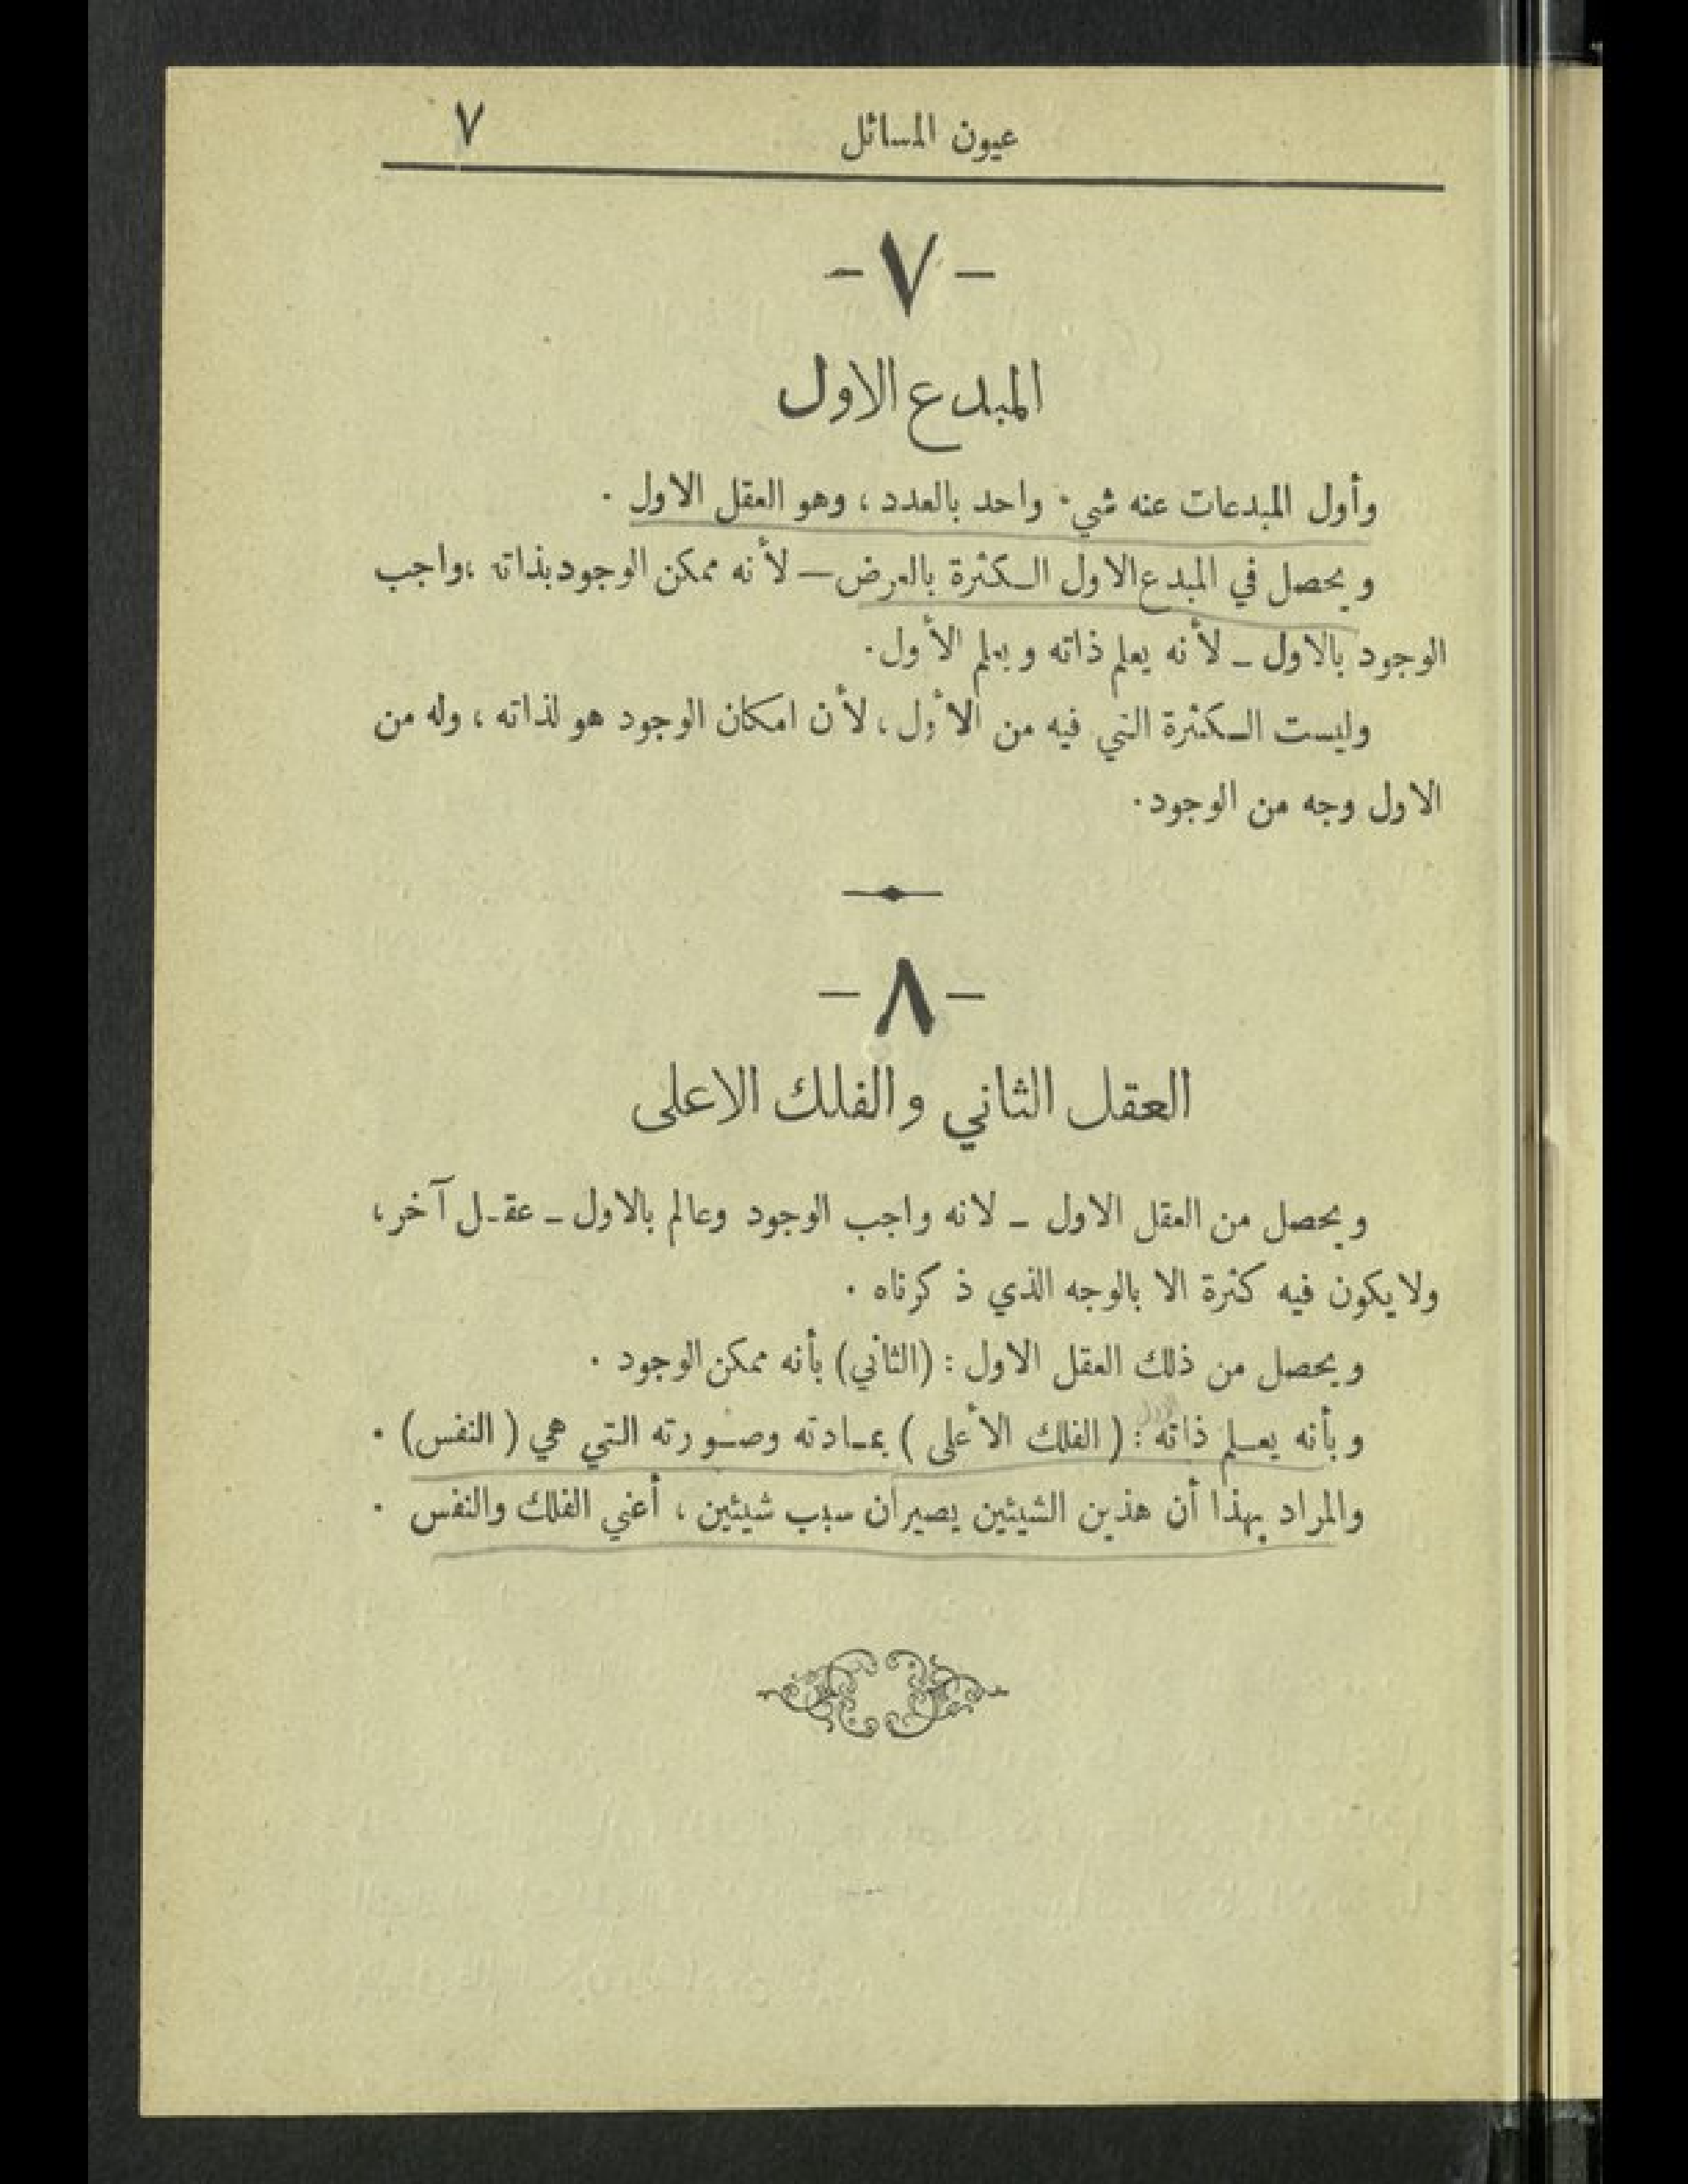 عيون المسائل ٧
- ٧ -
المبدع الاول
وأول المبدعات عنه شيء واحد بالعدد ، وهو العقل الاول .
ويحصل في المبدع الاول الكثرة بالعرض — لأنه ممكن الوجود بذاته ، واجب
الوجود بالاول — لأنه يعلم ذاته ويعلم الأول .
وليست الكثرة التي فيه من الأول ، لأن امكان الوجود هو لذاته ، وله من
الاول وجه من الوجود .
- ٨ -
العقل الثاني والفلك الاعلى
ويحصل من العقل الاول — لانه واجب الوجود وعالم بالاول — عقل آخر ،
ولا يكون فيه كثرة الا بالوجه الذي ذكرناه .
ويحصل من ذلك العقل الاول : (الثاني) بأنه ممكن الوجود .
وبأنه يعلم ذاته : ( الفلك الأعلى ) بمادته وصورته التي هي ( النفس ) .
والمراد بهذا أن هذين الشيئين يصيران سبب شيئين ، أعني الفلك والنفس .